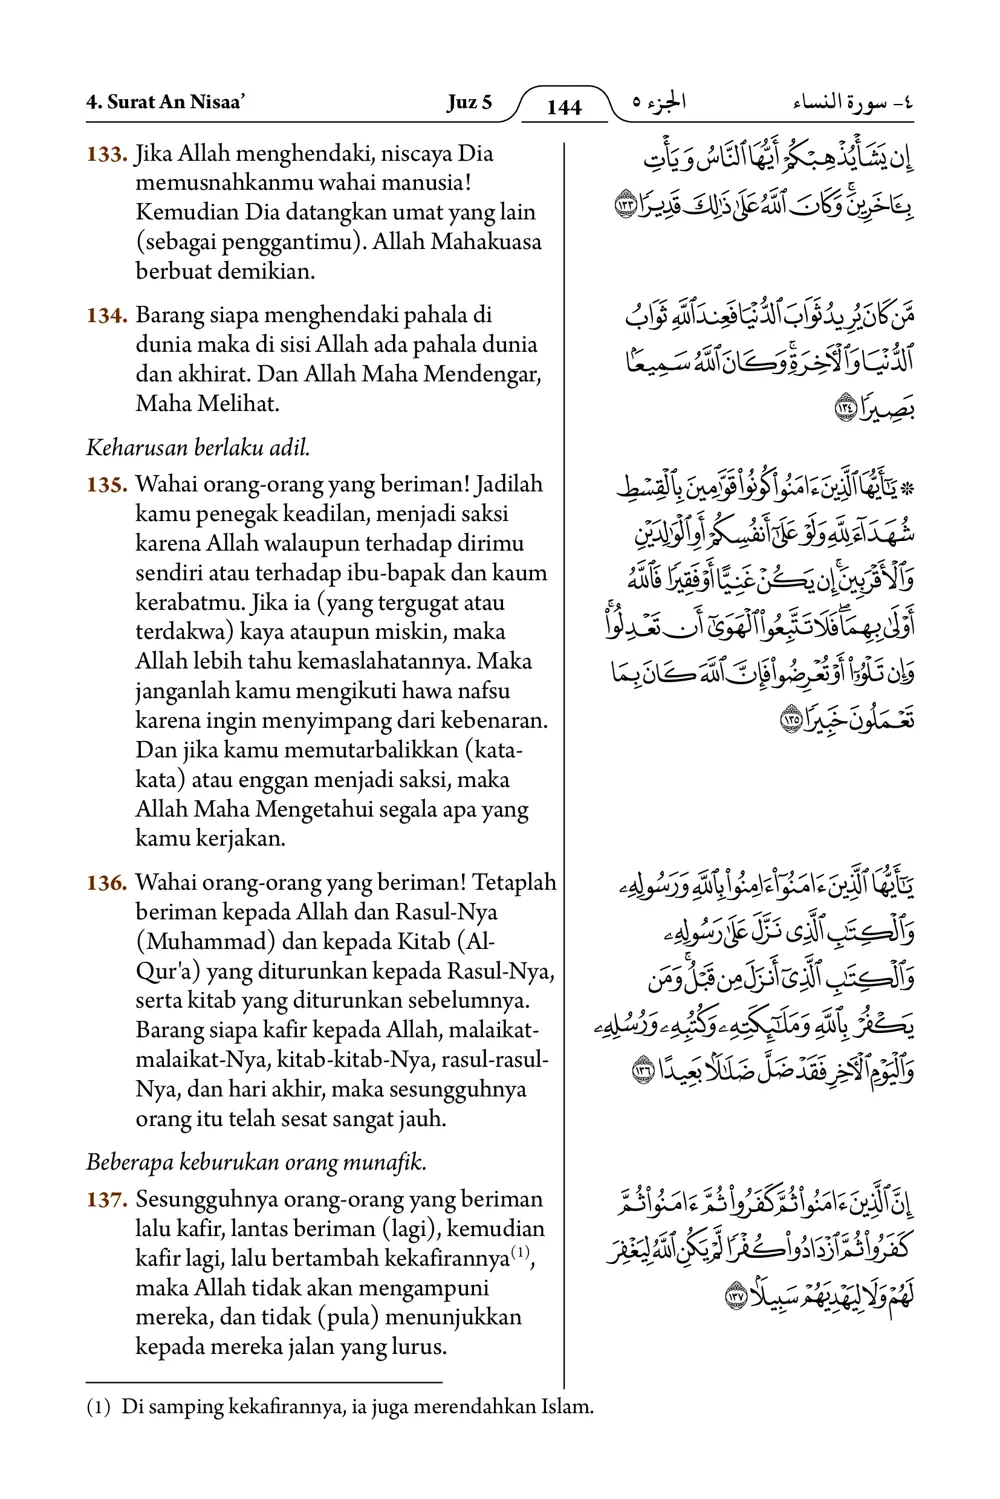 4. Surat An Nisaa’
Juz 5
144
الجزء ٥
٤- سورة النساء
133. Jika Allah menghendaki, niscaya Dia
memusnahkanmu wahai manusia!
Kemudian Dia datangkan umat yang lain
(sebagai penggantimu). Allah Mahakuasa
berbuat demikian.
134. Barang siapa menghendaki pahala di
dunia maka di sisi Allah ada pahala dunia
dan akhirat. Dan Allah Maha Mendengar,
Maha Melihat.
Keharusan berlaku adil.
135. Wahai orang-orang yang beriman! Jadilah
kamu penegak keadilan, menjadi saksi
karena Allah walaupun terhadap dirimu
sendiri atau terhadap ibu-bapak dan kaum
kerabatmu. Jika ia (yang tergugat atau
terdakwa) kaya ataupun miskin, maka
Allah lebih tahu kemaslahatannya. Maka
janganlah kamu mengikuti hawa nafsu
karena ingin menyimpang dari kebenaran.
Dan jika kamu memutarbalikkan (kata-
kata) atau enggan menjadi saksi, maka
Allah Maha Mengetahui segala apa yang
kamu kerjakan.
136. Wahai orang-orang yang beriman! Tetaplah
beriman kepada Allah dan Rasul-Nya
(Muhammad) dan kepada Kitab (Al-
Qur'a) yang diturunkan kepada Rasul-Nya,
serta kitab yang diturunkan sebelumnya.
Barang siapa kafir kepada Allah, malaikat-
malaikat-Nya, kitab-kitab-Nya, rasul-rasul-
Nya, dan hari akhir, maka sesungguhnya
orang itu telah sesat sangat jauh.
Beberapa keburukan orang munafik.
137. Sesungguhnya orang-orang yang beriman
lalu kafir, lantas beriman (lagi), kemudian
kafir lagi, lalu bertambah kekafirannya(1),
maka Allah tidak akan mengampuni
mereka, dan tidak (pula) menunjukkan
kepada mereka jalan yang lurus.
إِن يَشَأۡ يُذۡهِبۡكُمۡ أَيُّهَا ٱلنَّاسُ وَيَأۡتِ
بِـَٔاخَرِينَۚ وَكَانَ ٱللَّهُ عَلَىٰ ذَٰلِكَ قَدِيرٗا ١٣٣
مَّن كَانَ يُرِيدُ ثَوَابَ ٱلدُّنۡيَا فَعِندَ ٱللَّهِ ثَوَابُ
ٱلدُّنۡيَا وَٱلۡأٓخِرَةِۚ وَكَانَ ٱللَّهُ سَمِيعَۢا
بَصِيرٗا ١٣٤
۞ يَـٰٓأَيُّهَا ٱلَّذِينَ ءَامَنُواْ كُونُواْ قَوَّـٰمِينَ بِٱلۡقِسۡطِ
شُهَدَآءَ لِلَّهِ وَلَوۡ عَلَىٰٓ أَنفُسِكُمۡ أَوِ ٱلۡوَٰلِدَيۡنِ
وَٱلۡأَقۡرَبِينَۚ إِن يَكُنۡ غَنِيًّا أَوۡ فَقِيرٗا فَٱللَّهُ
أَوۡلَىٰ بِهِمَاۖ فَلَا تَتَّبِعُواْ ٱلۡهَوَىٰٓ أَن تَعۡدِلُواْۚ
وَإِن تَلۡوُۥٓاْ أَوۡ تُعۡرِضُواْ فَإِنَّ ٱللَّهَ كَانَ بِمَا
تَعۡمَلُونَ خَبِيرٗا ١٣٥
يَـٰٓأَيُّهَا ٱلَّذِينَ ءَامَنُوٓاْ ءَامِنُواْ بِٱللَّهِ وَرَسُولِهِۦ
وَٱلۡكِتَٰبِ ٱلَّذِي نَزَّلَ عَلَىٰ رَسُولِهِۦ
وَٱلۡكِتَٰبِ ٱلَّذِيٓ أَنزَلَ مِن قَبۡلُۚ وَمَن
يَكۡفُرۡ بِٱللَّهِ وَمَلَـٰٓئِكَتِهِۦ وَكُتُبِهِۦ وَرُسُلِهِۦ
وَٱلۡيَوۡمِ ٱلۡأٓخِرِ فَقَدۡ ضَلَّ ضَلَٰلَۢا بَعِيدًا ١٣٦
إِنَّ ٱلَّذِينَ ءَامَنُواْ ثُمَّ كَفَرُواْ ثُمَّ ءَامَنُواْ ثُمَّ
كَفَرُواْ ثُمَّ ٱزۡدَادُواْ كُفۡرٗا لَّمۡ يَكُنِ ٱللَّهُ لِيَغۡفِرَ
لَهُمۡ وَلَا لِيَهۡدِيَهُمۡ سَبِيلَۢا ١٣٧
(1) Di samping kekafirannya, ia juga merendahkan Islam.